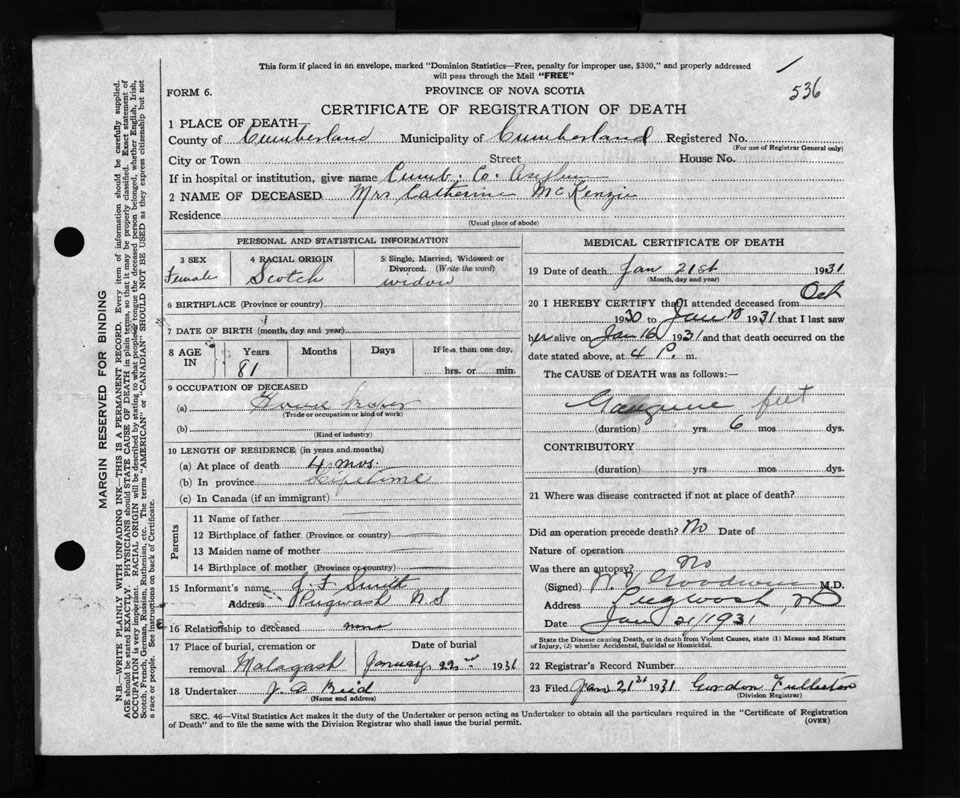 This form if placed in an envelope, marked "Dominion Statistics—Free, penalty for improper use, $300," and properly addressed
will pass through the Mail "FREE"
536
FORM 6.
PROVINCE OF NOVA SCOTIA
CERTIFICATE OF REGISTRATION OF DEATH
1 PLACE OF DEATH—
County of Cumberland Municipality of Cumberland Registered No.
(For use of Registrar General only)
City or Town Street House No.
If in hospital or institution, give name Cumb. Co. Asylum
2 NAME OF DECEASED Mrs Catherine McKenzie
Residence
(Usual place of abode)
PERSONAL AND STATISTICAL INFORMATION
3 SEX 4 RACIAL ORIGIN 5 Single, Married, Widowed or
Divorced. (Write the word)
Female Scotch widow
6 BIRTHPLACE (Province or country)
7 DATE OF BIRTH (month, day and year)
8 AGE IN Years Months Days If less than one day,
81 hrs. or min.
9 OCCUPATION OF DECEASED
(a) House
(Trade or occupation or kind of work)
(b)
(Kind of industry)
10 LENGTH OF RESIDENCE (in years and months)
(a) At place of death 4 mos.
(b) In province Lifetime
(c) In Canada (if an immigrant)
Parents
11 Name of father
12 Birthplace of father (Province or country)
13 Maiden name of mother
14 Birthplace of mother (Province or country)
15 Informant's name J. F. Smith
Address Pugwash N S
16 Relationship to deceased none
17 Place of burial, cremation or Date of burial
removal Malagash January 22nd 1931
18 Undertaker J. A. Reid
(Name and address)
MEDICAL CERTIFICATE OF DEATH
19 Date of death Jan 21st 1931
(Month, day and year)
20 I HEREBY CERTIFY that I attended deceased from Oct
1930 to Jan 1931 that I last saw
her alive on Jan 16 1931 and that death occurred on the
date stated above, at 4 P. m.
The CAUSE of DEATH was as follows:—
Gangrene feet
(duration) yrs 6 mos dys.
CONTRIBUTORY
(duration) yrs mos dys.
21 Where was disease contracted if not at place of death?
Did an operation precede death? No Date of
Nature of operation
Was there an autopsy? No
(Signed) W. V. Goodwin M.D.
Address Pugwash, NS
Date Jan 21/1931
State the Disease causing Death, or in death from Violent Causes, state (1) Means and Nature
of Injury, (2) whether Accidental, Suicidal or Homicidal.
22 Registrar's Record Number
23 Filed Jan 21st 1931 Gordon Fullerton
(Division Registrar)
SEC. 46—Vital Statistics Act makes it the duty of the Undertaker or person acting as Undertaker to obtain all the particulars required in the "Certificate of Registration
of Death" and to file the same with the Division Registrar who shall issue the burial permit. (OVER)
MARGIN RESERVED FOR BINDING
N.B.—WRITE PLAINLY WITH UNFADING INK—THIS IS A PERMANENT RECORD. Every item of information should be carefully supplied.
AGE should be stated EXACTLY. PHYSICIANS should STATE CAUSE OF DEATH in plain terms, so that it may be properly classified. Exact statement of
OCCUPATION is very important. RACIAL ORIGIN will be described by stating to what people or tongue the deceased person belonged, whether English, Irish,
Scotch, French, German, Russian, Ruthenian, etc. The terms "AMERICAN" or "CANADIAN" SHOULD NOT BE USED as they express citizenship but not
a race or people. See instructions on back of Certificate.